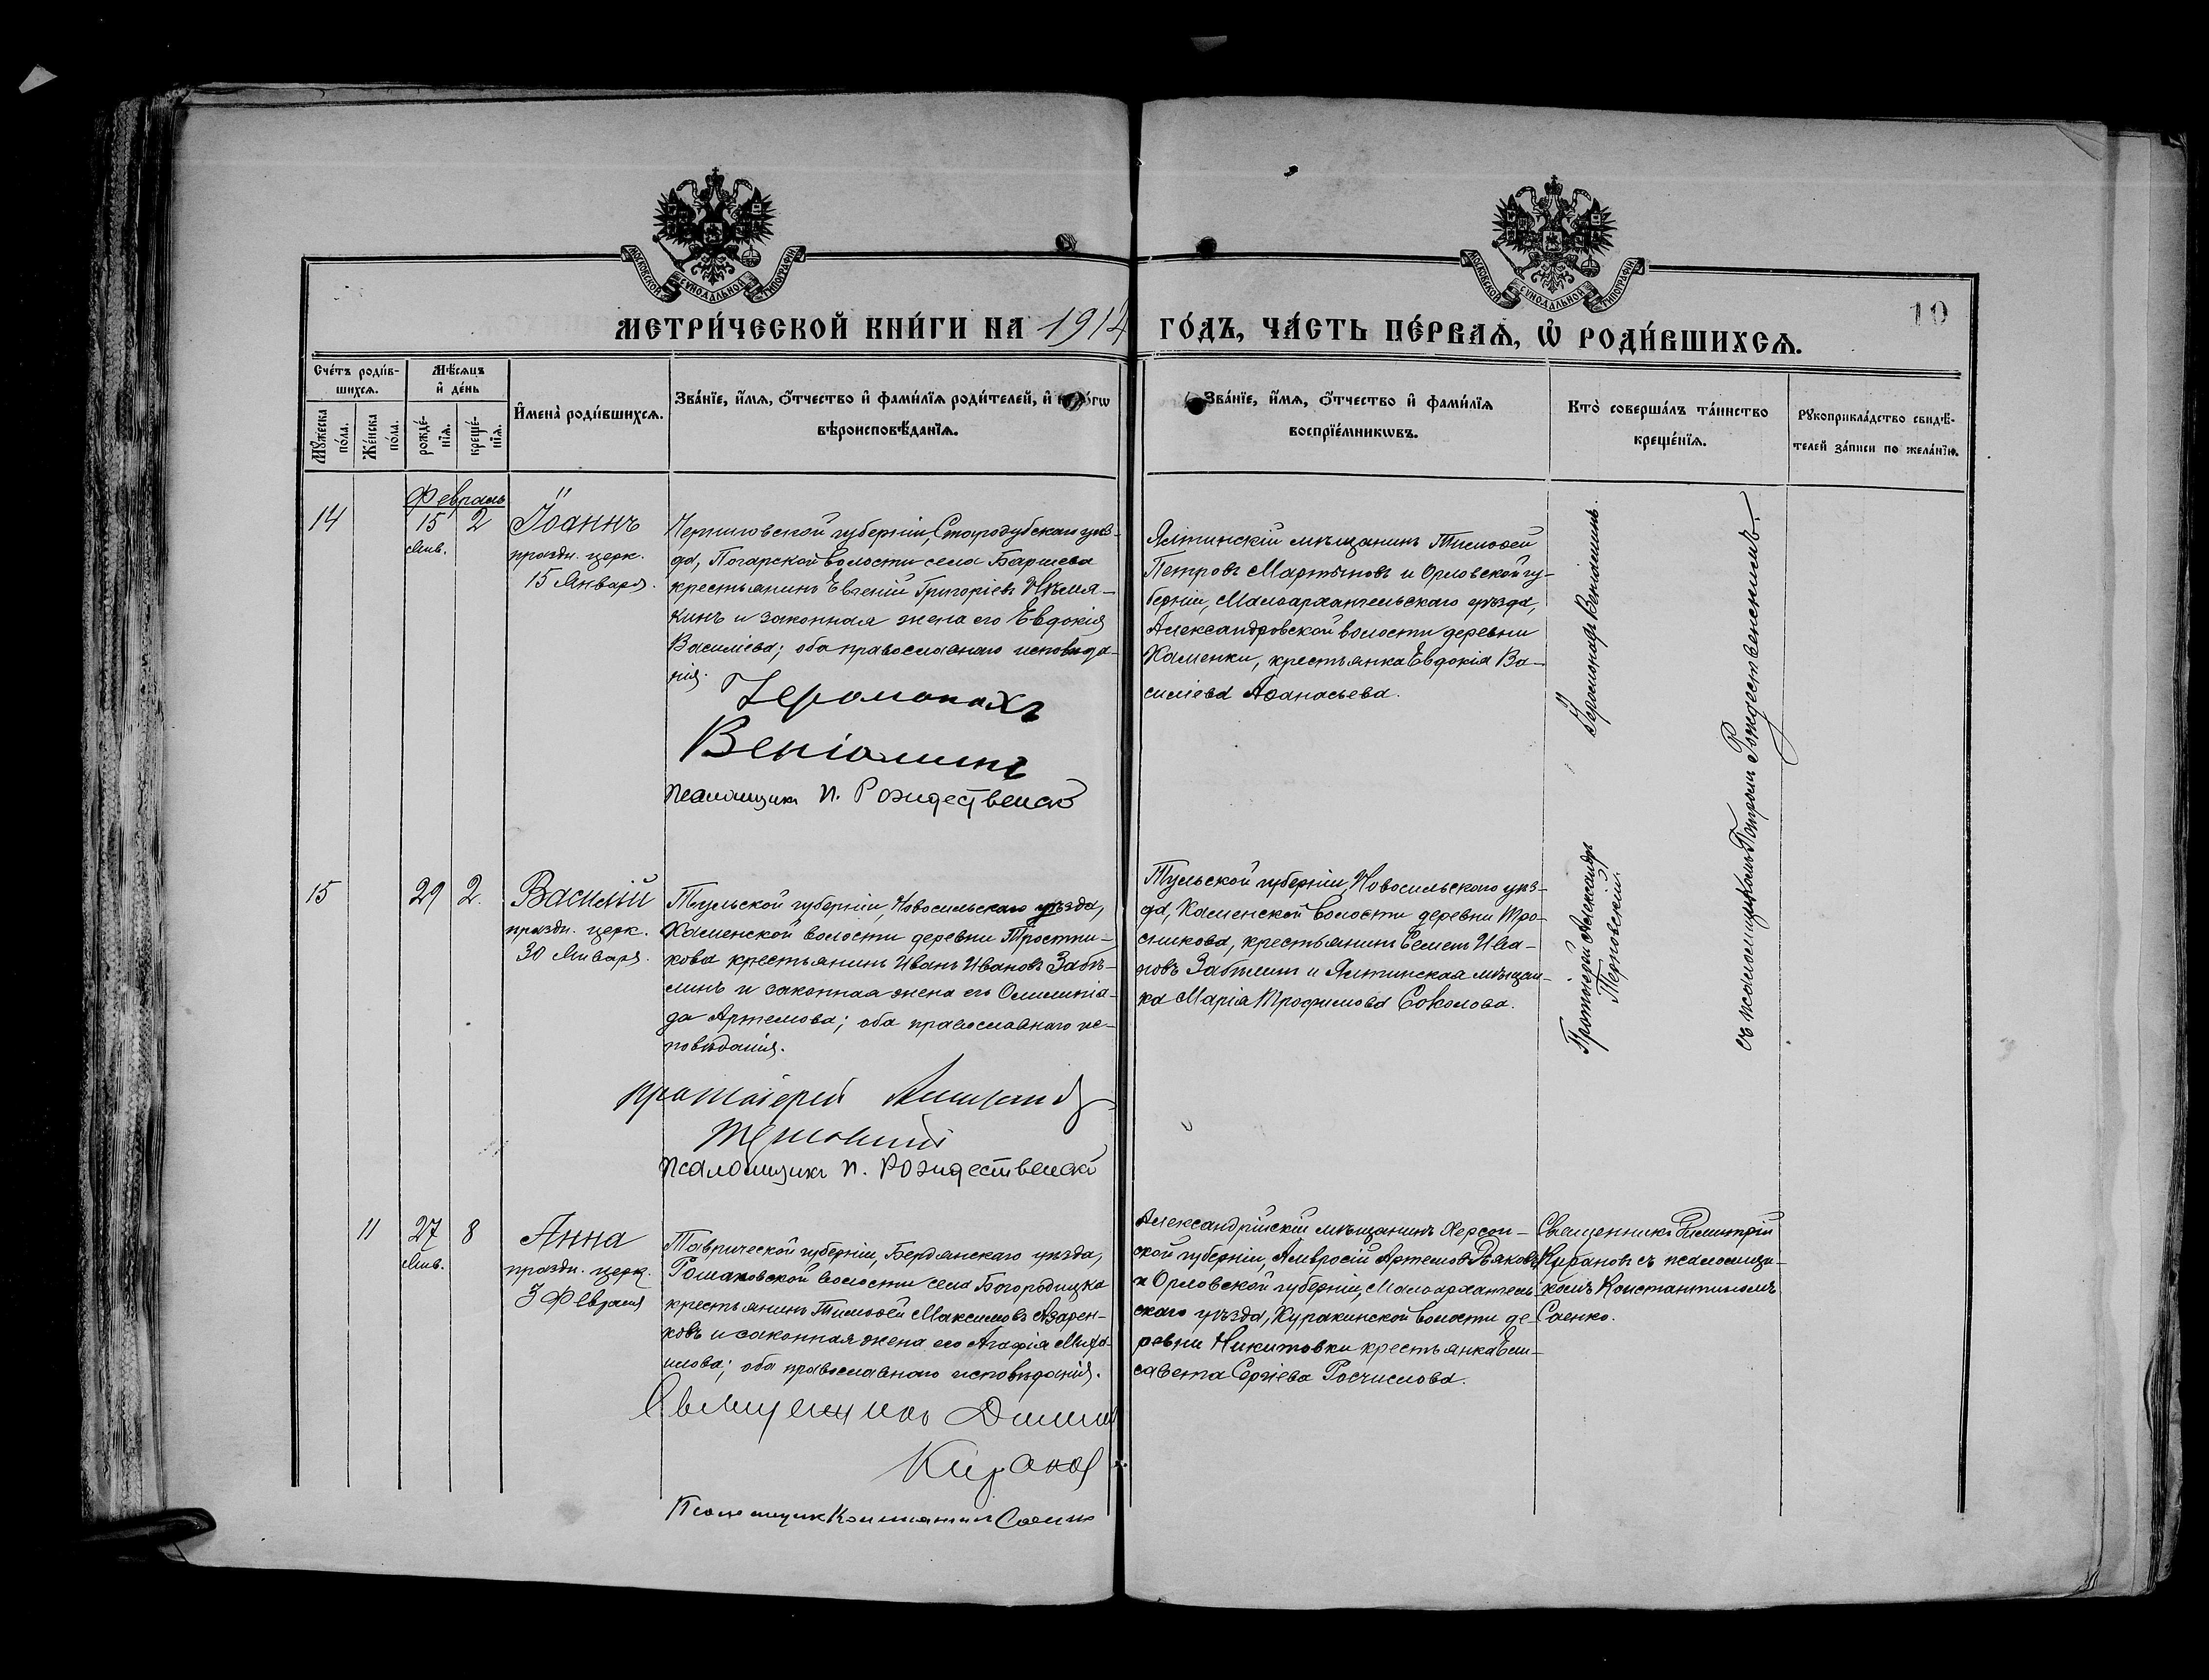 МОСКОВСКОЙ СѴНОДАЛЬНОЙ ТИПОГРАФІИ
МОСКОВСКОЙ СѴНОДАЛЬНОЙ ТИПОГРАФІИ
10
МЕТРИ́ЧЕСКОЙ КНИ́ГИ НА 1914 ГО́ДЪ, ЧА́СТЬ ПЕ́РВАѦ, Ѡ҆ РОДИ́ВШИХСѦ.
Сче́тъ роди́в-
шихсѧ.
Мꙋ́жеска
по́ла.
Же́нска
по́ла.
Мѣ́сѧцъ
и҆ де́нь
рожде́-
нїѧ.
креще́-
нїѧ.
И҆мена̀ роди́вшихсѧ.
Зва́нїе, и҆́мѧ, ѻ҆́тчество и҆ фами́лїѧ роди́телей, и҆
вѣроисповѣ́данїѧ.
Зва́нїе, и҆́мѧ, ѻ҆́тчество и҆ фами́лїѧ
воспрїе́мникѡвъ.
Кто̀ соверша́лъ та́инство
креще́нїѧ.
Рꙋкоприкла́дство свидѣ́-
телей за́писи по жела́нїю.
Февраль
14
15
Янв.
2
Іоаннъ
праздн. церк.
15 Января.
Черниговской губерніи, Стародубскаго уѣз-
да, Погарской волости села Баршева
крестьянинъ Евгеній Григоріевъ Нѣмя-
кинъ и законная жена его Евдокія
Василіева; оба православнаго исповѣда-
нія.
Іеромонахъ
Веніаминъ
Псаломщикъ П. Рождественскій
Ялтинскій мѣщанинъ Тимоѳей
Петровъ Мартыновъ и Орловской гу-
берніи, Малоархангельскаго уѣзда,
Александровской волости деревни
Каменки, крестьянка Евдокія Ва-
силіева Аѳанасьева.
Іеромонахъ Веніаминъ.
съ псаломщикомъ Петромъ Рождественскимъ.
15
29
2.
Василій
праздн. церк.
30 Января.
Тульской губерніи, Новосильскаго уѣзда,
Каменской волости деревни Тростни-
кова крестьянинъ Иванъ Ивановъ Забѣ-
линъ и законная жена его Олимпіа-
да Артемова; оба православнаго ис-
повѣданія.
Протоіерей Александръ
Терновскій
Псаломщикъ П. Рождественскій
Тульской губерніи, Новосильскаго уѣз-
да, Каменской волости деревни Тро-
сникова, крестьянинъ Семенъ Ива-
новъ Забѣлинъ и Ялтинская мѣщан-
ка Марія Трофимова Соколова.
Протоіерей Александръ
Терновскій.
11
27
Янв.
8
Анна
праздн. церк.
3 Февраля
Таврической губерніи, Бердянскаго уѣзда,
Романовской волости села Богородицка
крестьянинъ Тимоѳей Максимовъ Азарен-
ковъ и законная жена его Агафія Миха-
илова; оба православнаго исповѣданія.
Священникъ Димитрій
Кирановъ
Псаломщикъ Константинъ Саенко
Александрійскій мѣщанинъ Херсон-
ской губерніи, Амвросій Артемовъ Дьяковъ
и Орловской губерніи, Малоархангель-
скаго уѣзда, Куракинской волости де-
ревни Никитовки крестьянка Ели-
савета Сергіева Росчислова.
Священникъ Димитрій
Кирановъ съ псаломщи-
комъ Константиномъ
Саенко.